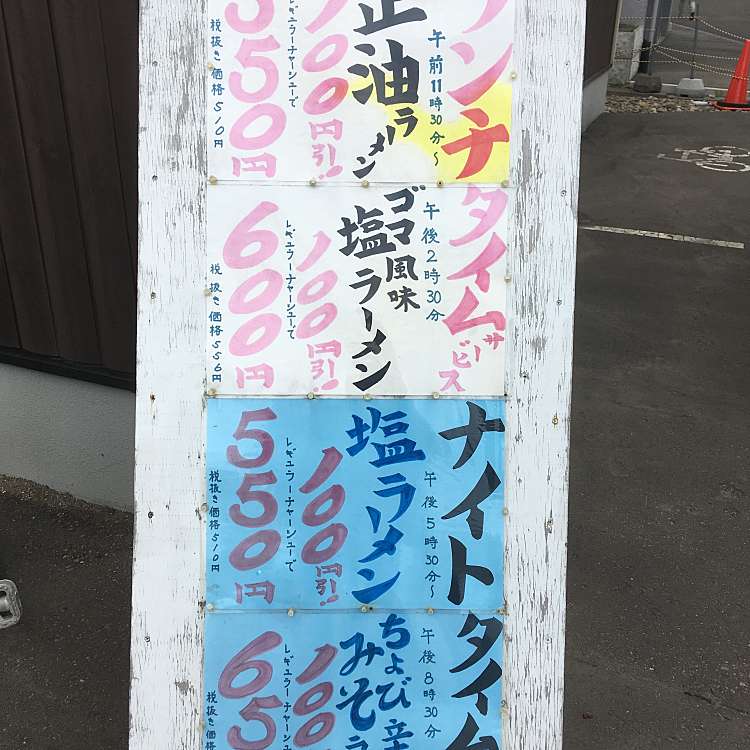 ンチタイムサービス
午前11時30分〜
午後2時30分
正油ラーメン
100円引!
レギュラーチャーシューで
550円
税抜き価格510円
ゴマ風味
塩ラーメン
100円引!
レギュラーチャーシューで
600円
税抜き価格556円
ナイトタイム
午後5時30分〜
午後8時30分
塩ラーメン
100円引!!
レギュラーチャーシューで
550円
税抜き価格510円
ちょび辛
みそラ
100
レギュラーチャーシューで
65
税抜き価格